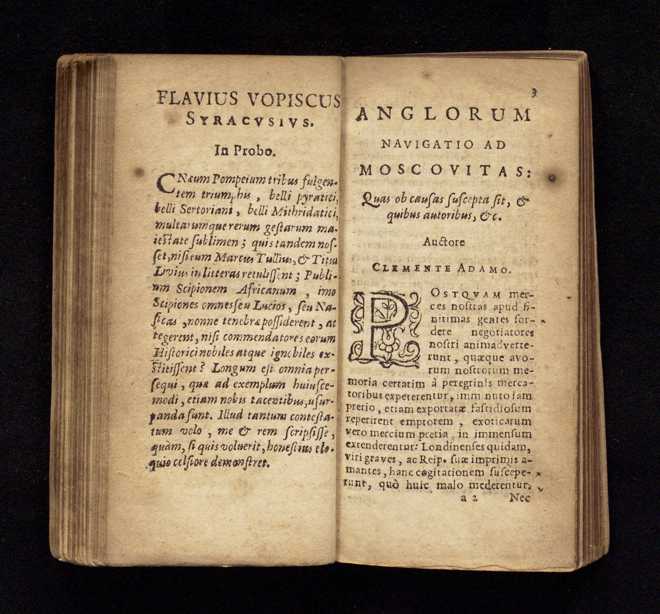 FLAVIUS VOPISCUS
SYRACVSIVS.
In Probo.
CNæum Pompeium tribus fulgen-
tem triumphis, belli pyratici,
belli Sertoriani, belli Mithridatici,
multarumque rerum gestarum ma-
iestate sublimen; quis tandem nos-
set, nisi eum Marcus Tullius, & Titus
Livius in litteras retulissent; Publi-
um Scipionem Africanum, imo
Scipiones omnes seu Lucios, seu Na-
sicas, nonne tenebræ possiderent, ac
tegerent, nisi commendatores eorum
Historici nobiles atque ignobiles ex-
stitissent? Longum est omnia per-
sequi, quæ ad exemplum huiusce-
modi, etiam nobis tacentibus, usur-
panda sunt. Illud tantum contesta-
tum volo, me & rem scripsisse,
quam, si quis voluerit, honestius elo-
quio celsiore demonstret.
3
ANGLORUM
NAVIGATIO AD
MOSCOVITAS:
Quas ob causas suscepta sit, &
quibus autoribus, &c.
Auctore
CLEMENTE ADAMO.
POSTQVAM mer-
ces nostras apud fi-
nitimas gentes sor-
dere negotiatores
nostri animadverte-
runt, quæque avo-
rum nostrorum me-
moria certatim à peregrinis merca-
toribus expeterentur, imminuto jam
pretio, etiam exportatæ fastidiosum
reperirent emptorem, exoticarum
vero mercium pretia, in immensum
extenderentur: Londinenses quidam,
viri graves, ac Reip. suæ imprimis a-
mantes, hanc cogitationem suscepe-
runt, quò huic malo mederentur.
a 2 Nec